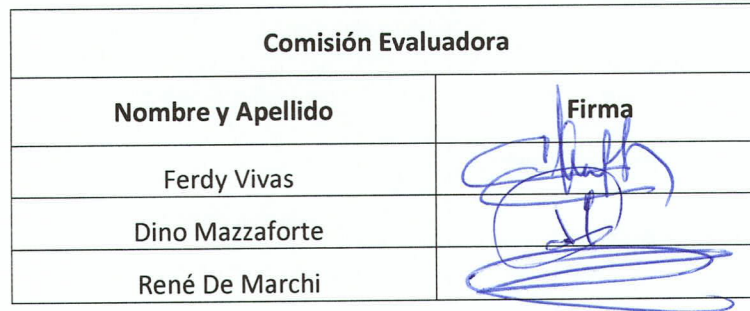 Comisión Evaluadora
Nombre y Apellido Firma
Ferdy Vivas
Dino Mazzaforte
René De Marchi